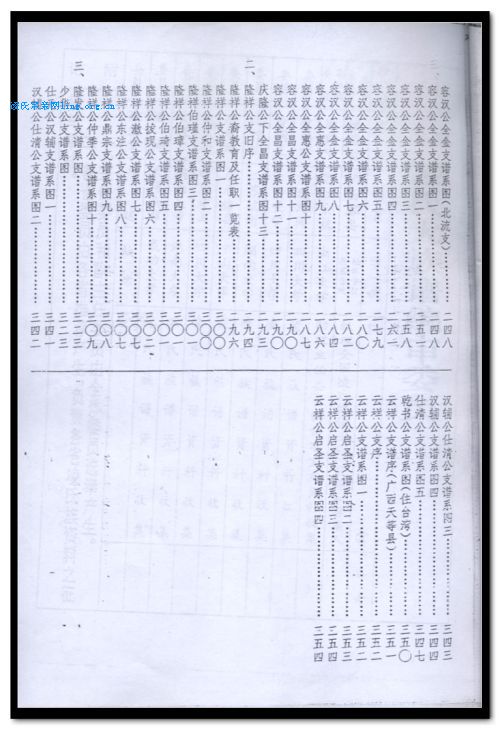 容汉公全金支谱系图(北流支)……二四八
容汉公全金支谱系图一……二四八
容汉公全金支谱系图二……二五一
容汉公全金支谱系图三……二五八
容汉公全金支谱系图四……二六一
容汉公全金支谱系图五……二七九
容汉公全金支谱系图六……二八〇
容汉公全金支谱系图七……二八二
容汉公全金支谱系图八……
容汉公全惠支谱系图九……二八六
容汉公全惠公支谱系图十……二八七
容汉公全昌支谱系图十一……二九〇
容汉公全昌支谱系图十二……二九〇
庆隆公下全昌支谱系图十三……二九三
二、隆祥公支旧序……二九四
隆祥公裔教育及任职一览表……二九六
隆祥公支谱系图一……三〇〇
隆祥公仲和支谱系图二……三〇〇
隆祥伯瑾支谱系图三……三〇一
隆祥公伯璋支谱系图四……三〇一
隆祥公伯琦支谱系图五……三〇一
隆祥公拔现公支谱系图六……三〇二
隆祥公澈公支谱系图七……三〇七
隆祥公东注公支谱系图八……三〇七
隆祥公鼎宗支谱系图九……三〇八
隆祥公仲季公支谱系图十……三〇九
三、隆发公支谱系图……三二三
少公支谱系图……三二三
仕公汉辅支谱系图一……三四一
汉公仕清公支谱系图二……三四二
汉辅公仕清公支谱系图三……三四三
汉辅公支谱系图四……三四四
仕清公支谱系图五……三四七
乾书公支谱系图(住台湾)……三五〇
云祥公支谱序(广西天等县)……三五一
云祥公支序……三五二
云祥公支谱系图一……三五二
云祥公启圣支谱系图二……三五三
云祥公启圣支谱系图三……三五四
云祥公启圣支谱系图四……三五四
凌氏宗亲网ling.org.cn